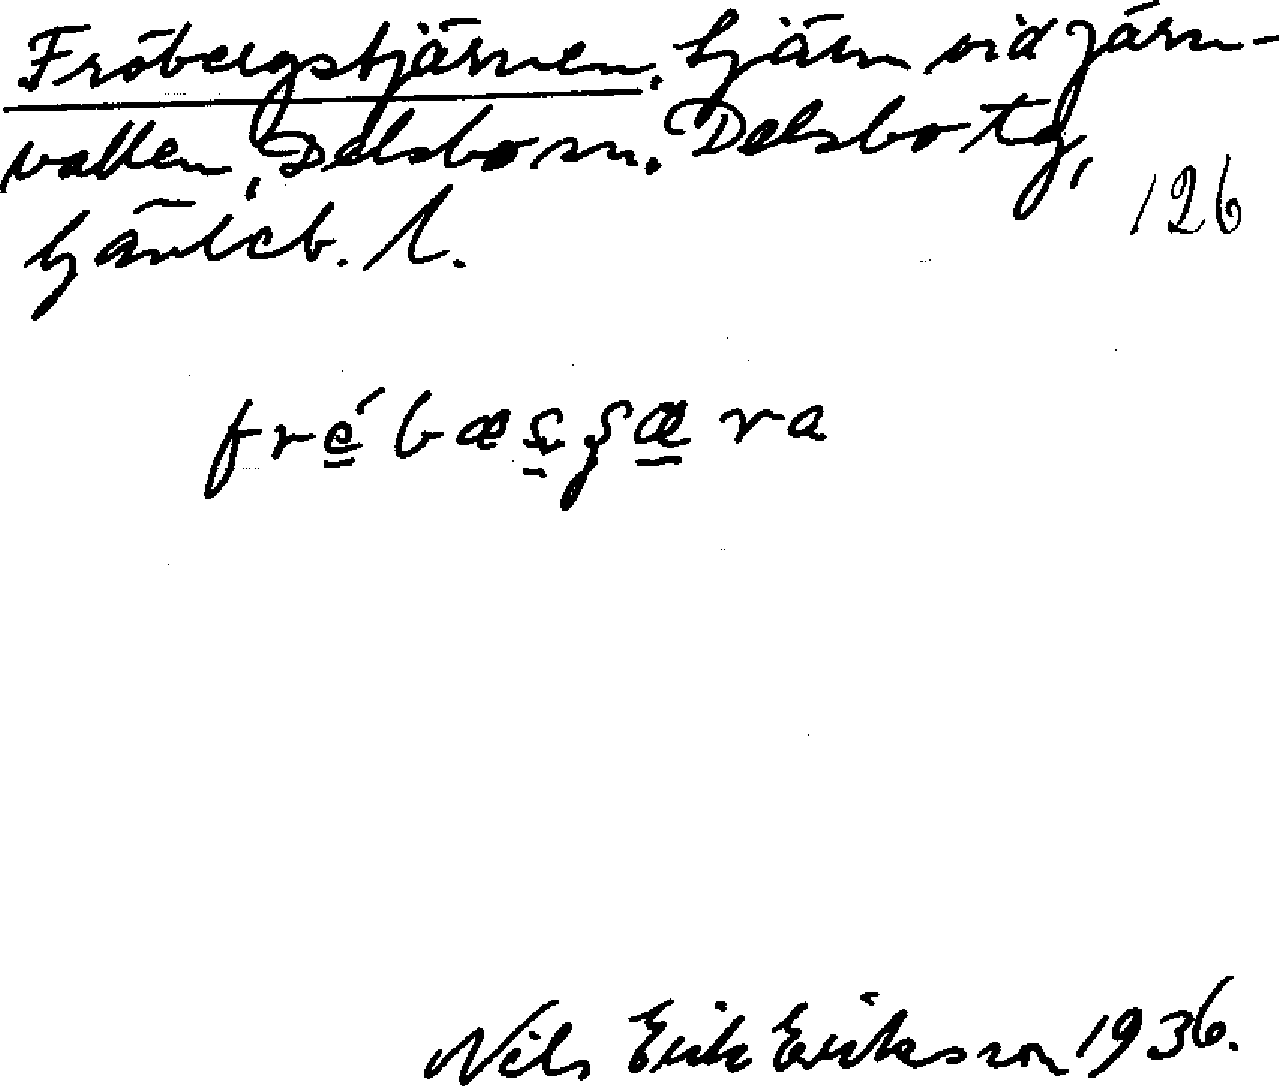 Fröbergstjärnen. tjärn vid Järn-
vallen, Delsbo sn. Delsbo tg,
Gävleb. l.
126
frébæsʂæra
Nils Erik Eriksson 1936.